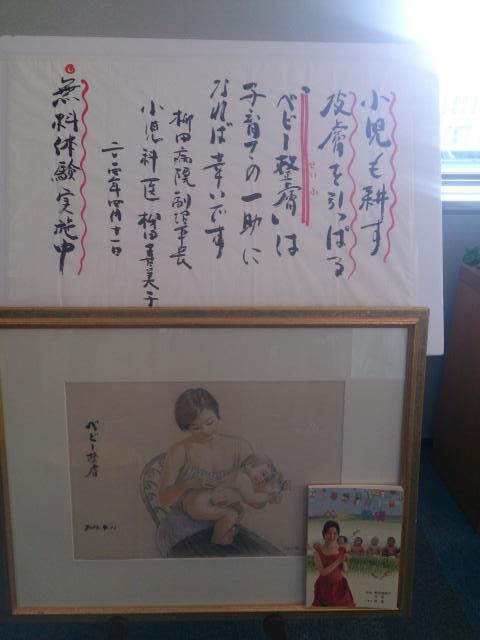 小児も耕す
皮膚を引っぱる
ベビー整膚は
せいふ
子育ての一助に
なれば幸いです
柳田病院副理事長
小児科医 柳田喜美子
四月十一日
無料体験実施中
ベビー整膚